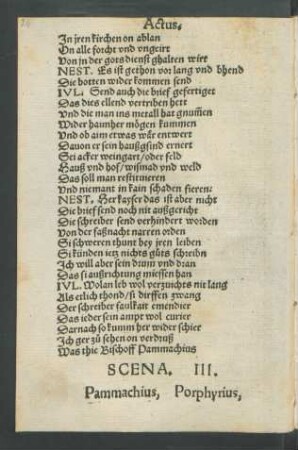 Actus,
In jren kirchen on ablan
On alle forcht vnd vngeirt
Von jn der gots dienst ghalten wirt
NEST. Es ist gethon vor lang vnd bhend
Die botten wider kommen send
IVL. Send auch die brief gefertiget
Das dies ellend vertriben hett
Vnd die man ins metall hat gnum̄en
Wider haimher mögen kummen
Vnd ob aim etwas wär entwert
Dauon er sein haußgsind ernert
Sei acker weingart/ oder feld
Hauß vnd hof/ wismad vnd weld
Das soll man restituieren
Vnd niemant in kain schaden fieren:
NEST. Her kayser das ist aber nicht
Die brief send noch nit außgericht
Die schreiber send verhindert worden
Von der faßnacht narren orden
Si schweren thunt bey jren leiben
Si künden ietz nichts güts schreibn
Ich will aber sein drum vnd dran
Das si außrichtung miessen han
IVL. Wolan leb wol verzuichts nit lang
Als etlich thond/ si dirffen zwang
Der schreiber faulkait emendier
Das ieder sein ampt wol curier
Darnach so kumm her wider schier
Ich ger zů sehen on verdruß
Was thie Bischoff Pammachius
SCENA. III.
Pammachius, Porphyrius,